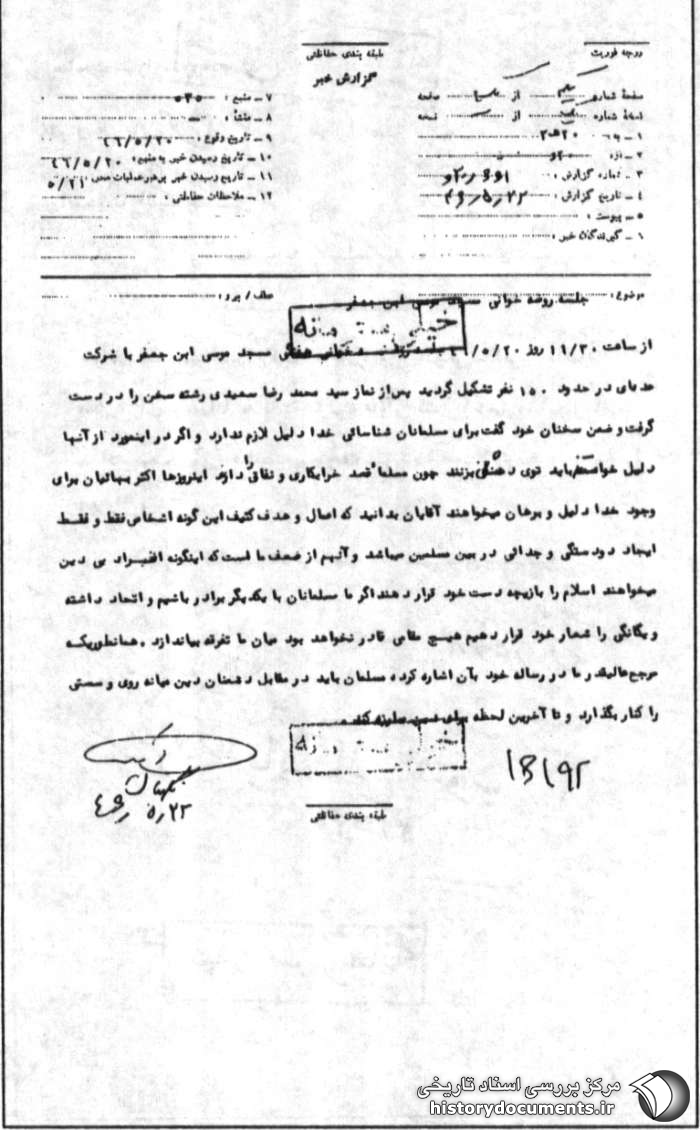 درجه فوریت
طبقه بندی حفاظتی
گزارش خبر
صفحه شماره یکم از صفحه
نسخه شماره از نسخه
۱ ـ به ۳۵۲۰
۲ ـ از ۲۰
۳ ـ شماره گزارش :
۴ ـ تاریخ گزارش : ۴۶٫۵٫۲۲
۵ ـ پیوست :
۶ ـ گیرندگان خبر :
۷ ـ منبع : ۵۳۵
۸ ـ منشأ :
۹ ـ تاریخ وقوع : ۴۶/۵/۲۰
۱۰ ـ تاریخ رسیدن خبر به منبع : ۴۶/۵/۲۰
۱۱ ـ تاریخ رسیدن خبر به رهبر عملیات ۵/۲۱
۱۲ ـ ملاحظات حفاظتی :
موضوع : جلسه روضه خوانی مسجد موسی ابن جعفر
عطف / پیرو :
خیلی محرمانه
از ساعت ۱۱/۳۰ روز ۴۶/۵/۲۰ جلسه هفتگی مسجد موسی ابن جعفر با شرکت
عده‌ای در حدود ۱۵۰ نفر تشکیل گردید پس از نماز سید محمد رضا سعیدی رشته سخن را در دست
گرفت و ضمن سخنان خود گفت برای مسلمانان شناسائی خدا دلیل لازم ندارد و اگر در اینمورد از آنها
دلیل خواستند باید توی دهنش بزنند چون مسلما قصد خرابکاری و نفاق را دارند اینروزها اکثر بهائیان برای
وجود خدا دلیل و برهان میخواهند آقایان بدانید که اعمال و هدف کثیف این گونه اشخاص فقط و فقط
ایجاد دودستگی و جدائی در بین مسلمین میباشد و آنهم از ضعف ما است که اینگونه افراد بی دین
میخواهند اسلام را بازیچه دست خود قرار دهند اگر ما مسلمانان با یکدیگر برادر باشیم و اتحاد داشته
و یگانگی را شعار خود قرار دهیم هیچ مقامی قادر نخواهد بود میان ما تفرقه بیاندازد . همانطوریکه
مرجع عالیقدر ما در رساله خود بآن اشاره کرده مسلمان باید در مقابل دشمنان دین میانه روی و سستی
را کنار بگذارد و تا آخرین لحظه برای دین مبارزه کند .
خیلی محرمانه
۱۳۱۹۲
نگهبان
۴۶٫۵٫۲۲
طبقه بندی حفاظتی
مرکز بررسی اسناد تاریخی
historydocuments.ir